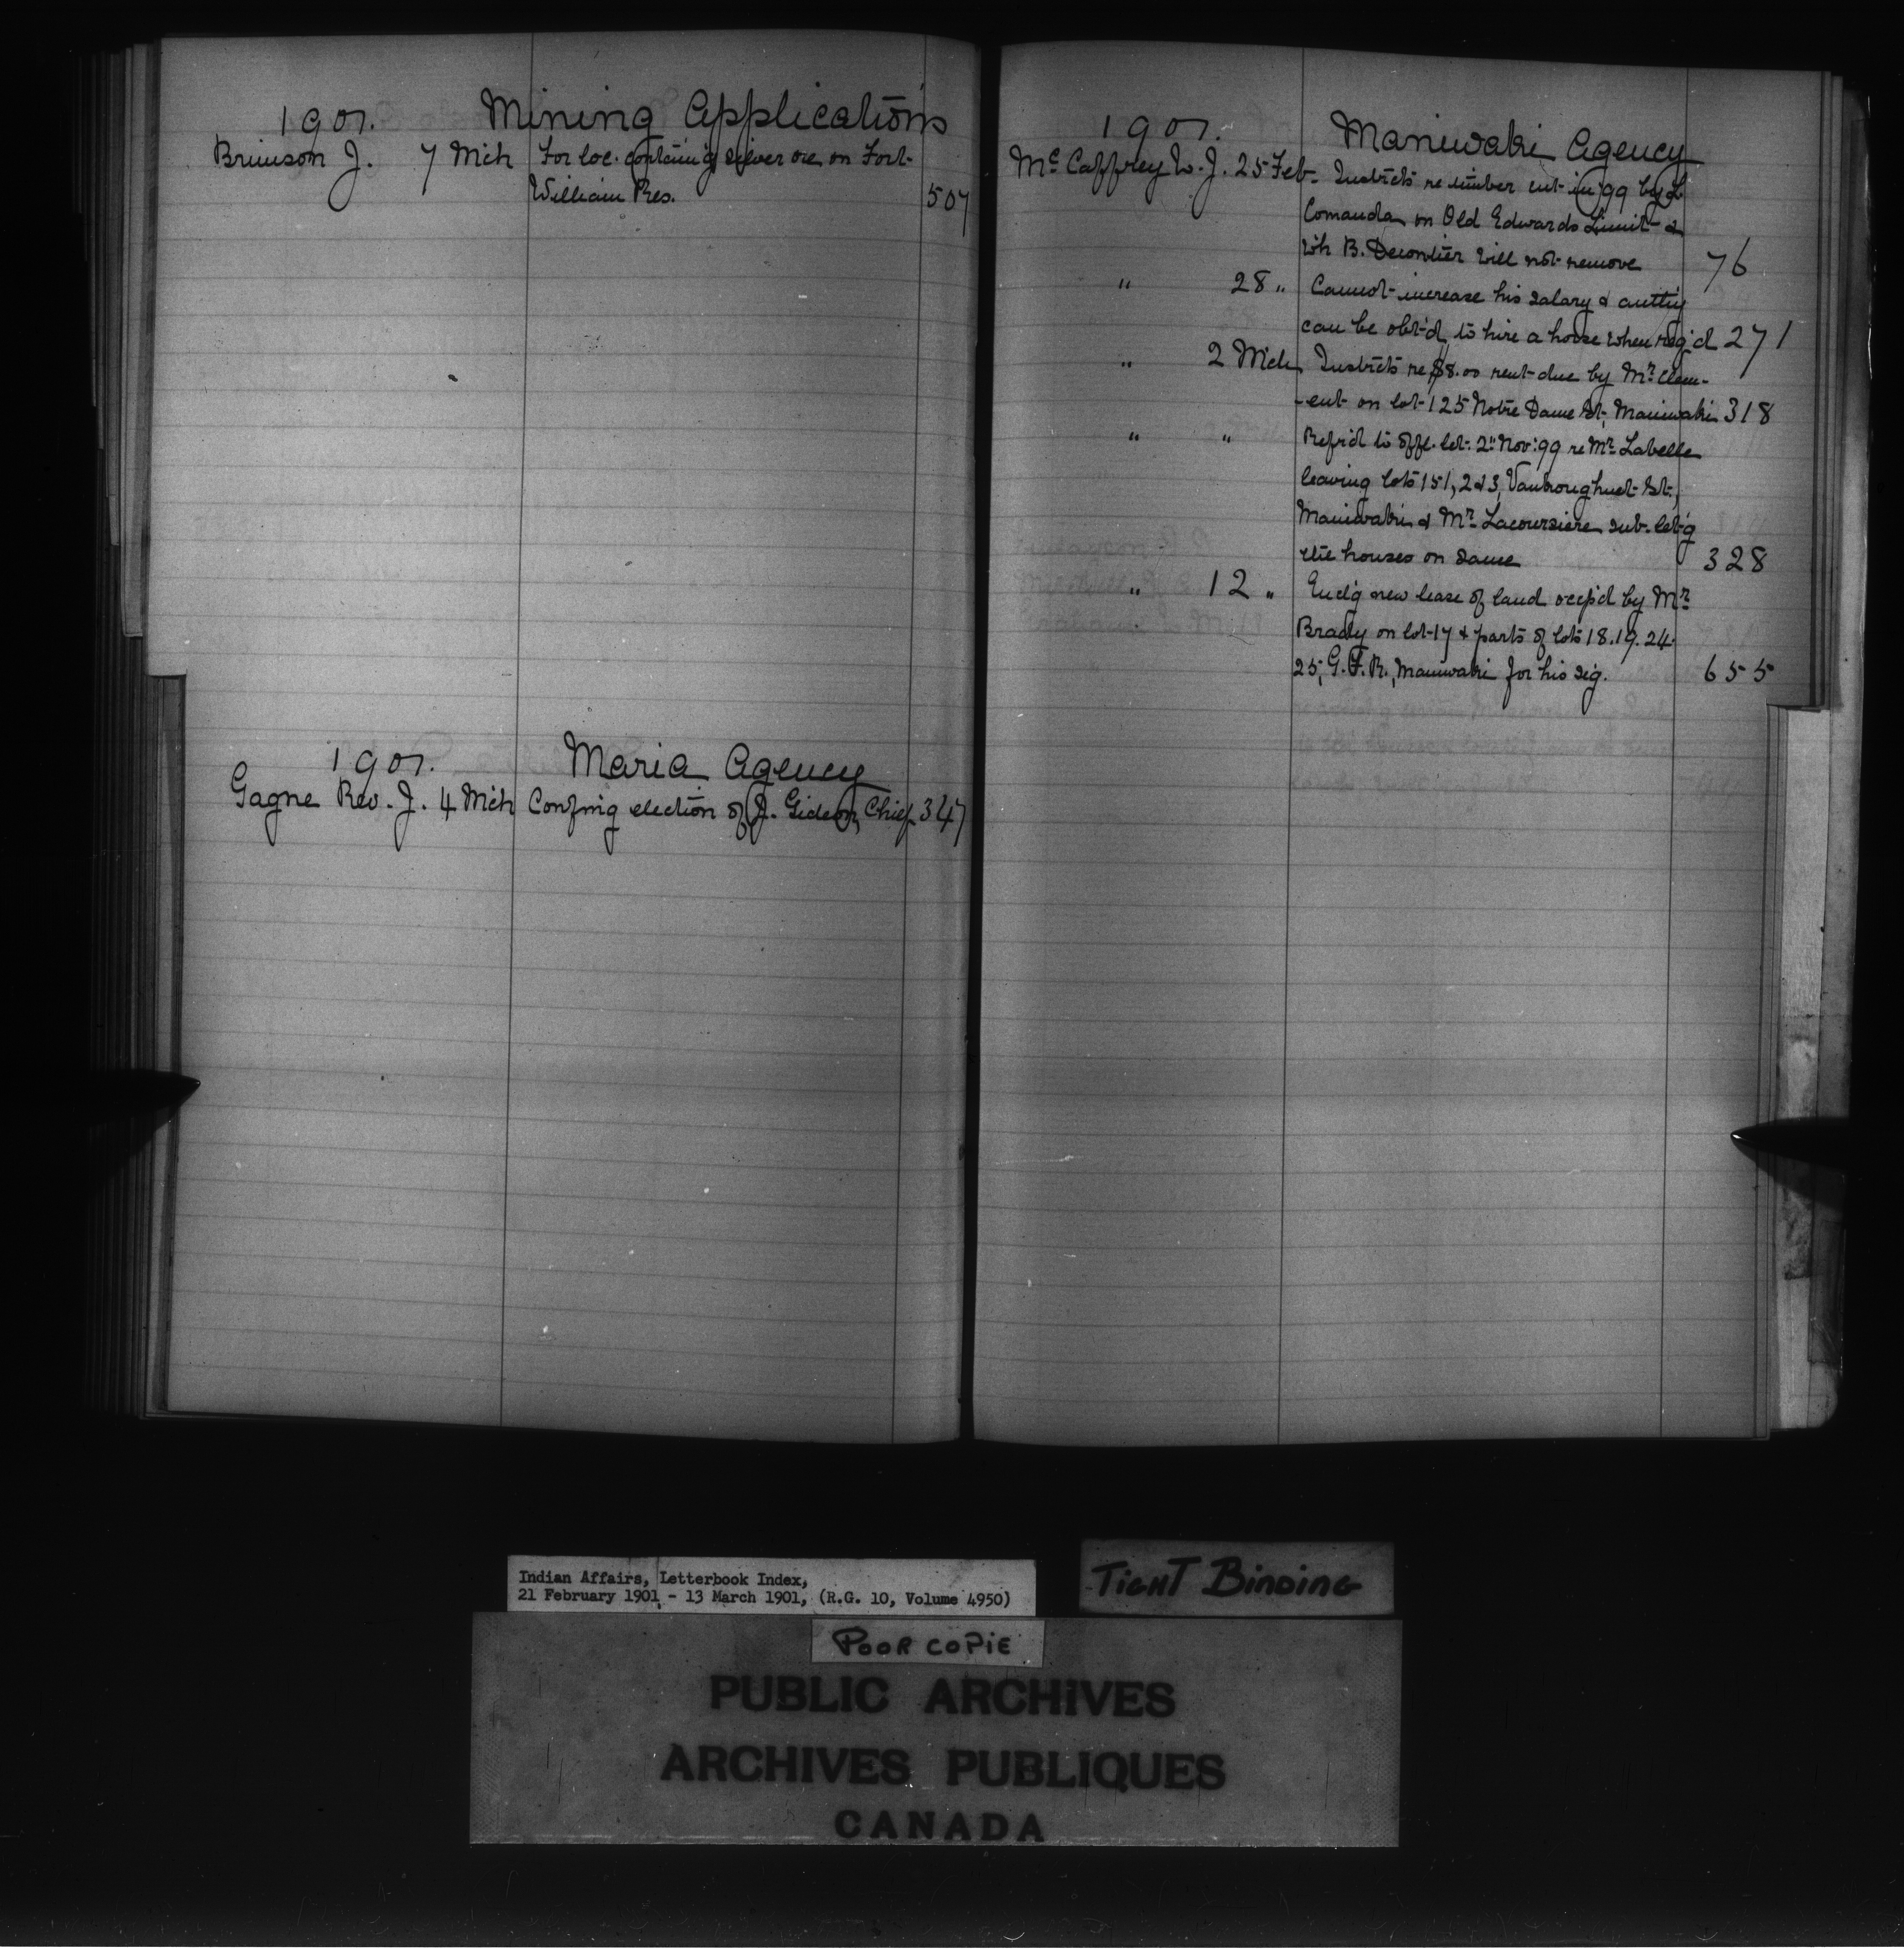 1901. Mining Applications
Brimson J. 7 Mch For loc. containi'g silver ore on Fort-
William Res. 507
1901. Maria Agency
Gagne Rev. J. 4 Mch Confmg election of J. Gideon, Chief 347
1901. Maniwaki Agency
McCaffrey W. J. 25 Feb. Instrcts re timber cut in '99 by L
Comanda on Old Edwards Limit &
wh B. Decontier will not remove 76
" 28 " Cannot increase his salary & authy
can be obt'd to hire a horse when req'd 271
" 2 Mch Instrcts re $8.00 rent due by Mr. Clem-
-ent on lot 125 Notre Dame St., Maniwaki 318
" " Ref'd to offl. let. 2" Nov. '99 re Mr. Labelle
leaving lots 151, 2 & 3, St.,
Maniwaki & Mr. Lacoursiere sub-let'g
the houses on same 328
" 12 " Encl'g new lease of land occp'd by Mr.
Brady on lot 17 & parts of lots 18. 19. 24.
25, G. F. R., Maniwaki for his sig. 655
Indian Affairs, Letterbook Index,
21 February 1901 - 13 March 1901, (R.G. 10, Volume 4950)
TIGHT BINDING
POOR COPIE
PUBLIC ARCHIVES
ARCHIVES PUBLIQUES
CANADA